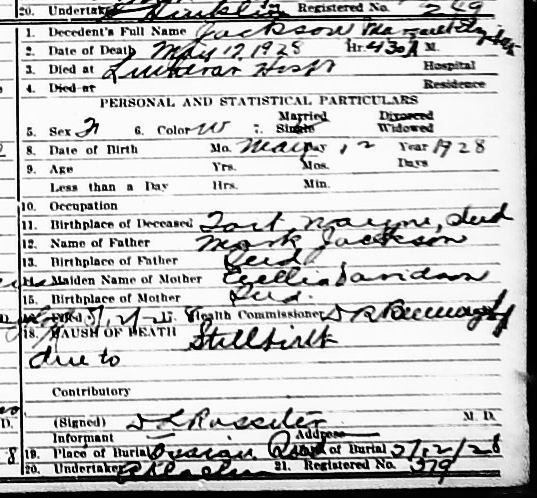 20. Undertaker Hinklin 21. Registered No. 249
1. Decedent's Full Name Jackson Margaret
2. Date of Death May 12, 1928 Hr. 4 30 A M.
3. Died at Lutheran Hosp Hospital
4. Died at Residence
PERSONAL AND STATISTICAL PARTICULARS
5. Sex F 6. Color W 7. Married Single Divorced Widowed
8. Date of Birth Mo. May Day 12 Year 1928
9. Age Yrs. Mos. Days
Less than a Day Hrs. Min.
10. Occupation
11. Birthplace of Deceased Fort Wayne, Ind
12. Name of Father Mark Jackson
13. Birthplace of Father Ind
14. Maiden Name of Mother Davidson
15. Birthplace of Mother Ind.
Health Commissioner
18. CAUSE OF DEATH Stillbirth
due to
Contributory
(Signed) Rossiter M. D.
Informant Address
19. Place of Burial Date of Burial 5/12/28
20. Undertaker 21. Registered No. 379